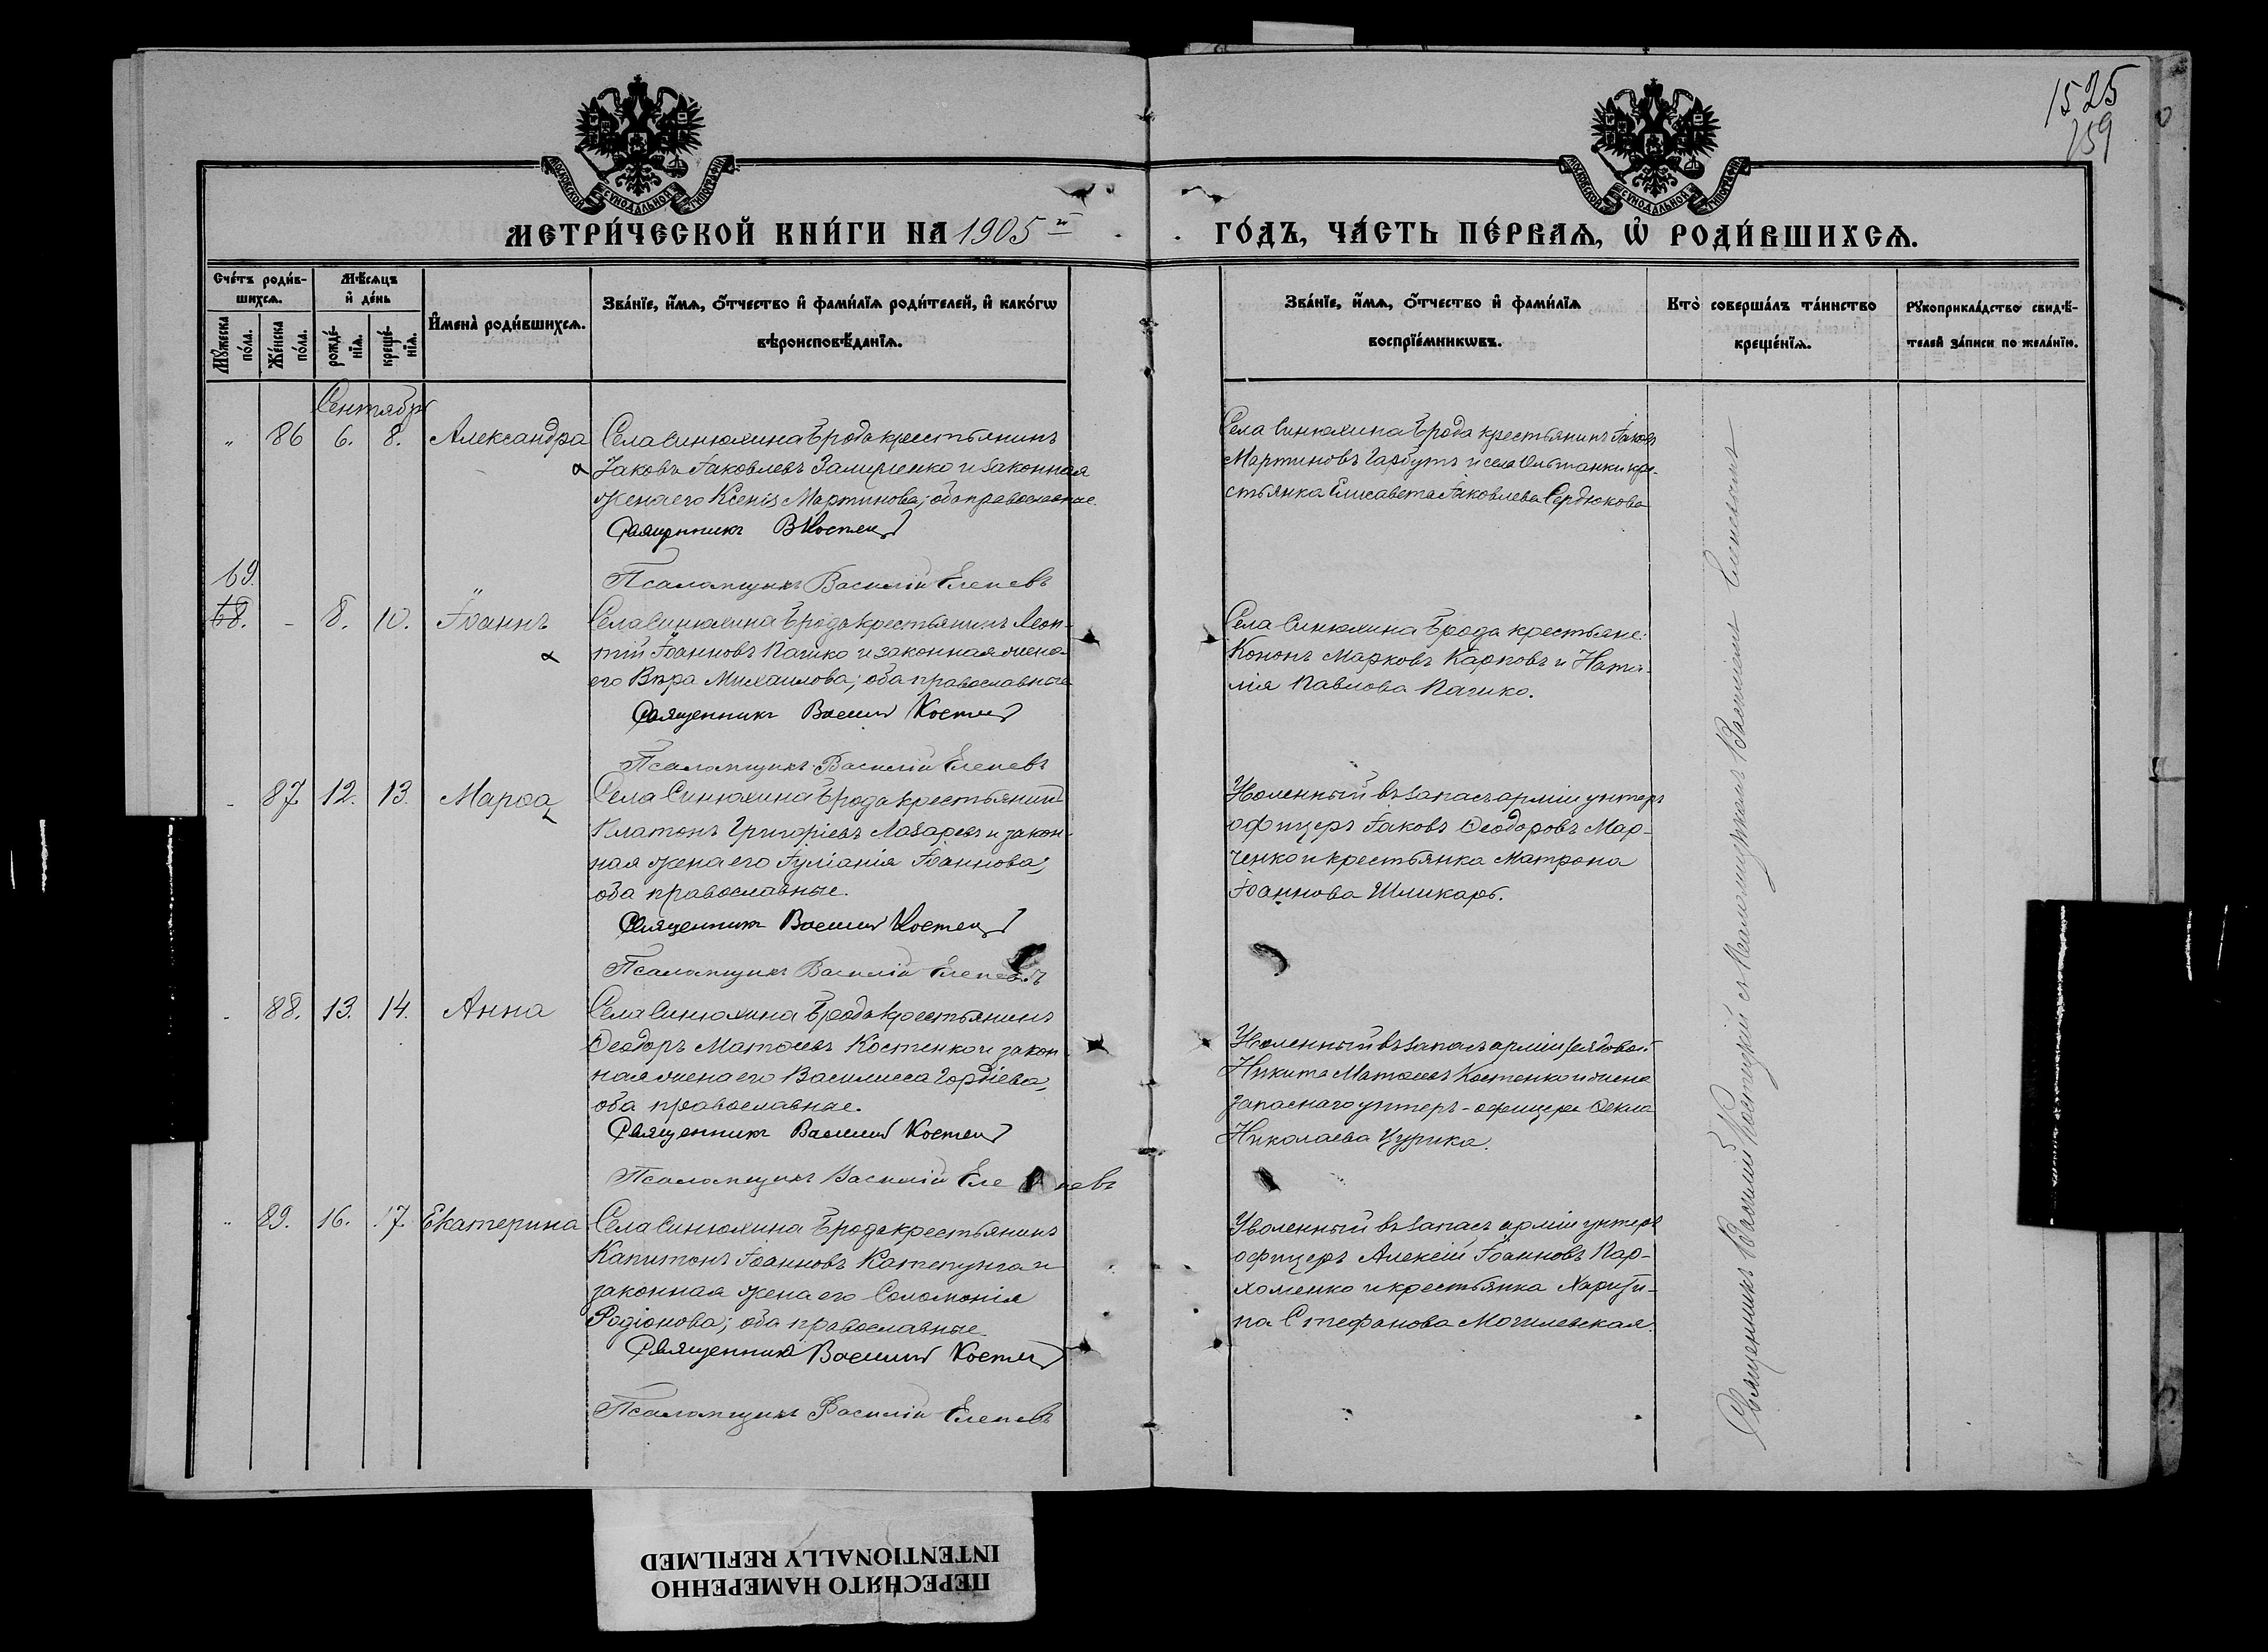 1525
759
МОСКОВСКОЙ СѴНОДАЛЬНОЙ ТИПОГРАФІИ
МОСКОВСКОЙ СѴНОДАЛЬНОЙ ТИПОГРАФІИ
МЕТРИ́ЧЕСКОЙ КНИ́ГИ НА 1905й
ГО́ДЪ, ЧА́СТЬ ПЕ́РВАѦ, Ѡ҆ РОДИ́ВШИХСѦ.
Сче́тъ роди́в-
шихсѧ.
Мꙋ́жеска по́ла.
Же́нска по́ла.
Мѣ́сѧцъ
и҆ де́нь
рожде́-
нїѧ.
креще́-
нїѧ.
И҆мена̀ роди́вшихсѧ.
Зва́нїе, и҆́мѧ, ѻ҆́тчество и҆ фами́лїѧ роди́телей, и҆ како́гѡ
вѣроисповѣ́данїѧ.
Зва́нїе, и҆́мѧ, ѻ҆́тчество и҆ фами́лїѧ
воспрїе́мникѡвъ.
Кто̀ соверша́лъ та́инство
креще́нїѧ.
Рꙋкоприкла́дство свидѣ́-
телей за́писи по жела́нїю.
Сентябрь
" 86 6. 8. Александра
Села Синюхина Брода крестьянинъ
Іаковъ Іаковлевъ и законная
жена его Ксенія Мартинова; оба православные.
Священникъ В Костец
Псаломщикъ Василій Елепевъ
Села Синюхина Брода крестьянинъ Іаковъ
Мартиновъ Гарбузъ и села Ольшанки кре-
стьянка Елисавета Іаковлева Сердюкова
69.
68. - 8. 10. Іоаннъ
Села Синюхина Брода крестьянинъ Леон-
тій Іоанновъ Пашко и законная жена
его Вѣра Михаилова; оба православные
Священникъ Василій Костец
Псаломщикъ Василій Елепевъ
Села Синюхина Брода крестьяне:
Кононъ Марковъ Карповъ и Ната-
лія Павлова Пашко.
- 87 12. 13. Марѳа
Села Синюхина Брода крестьянинъ
Платонъ Григоріевъ Лазаревъ и закон-
ная жена его Іуліанія Іоаннова;
оба православные.
Священникъ Василій Костец
Псаломщикъ Василій Елепевъ
Уволенный въ запасъ арміи унтеръ
офицеръ Іаковъ Ѳеодоровъ Мар-
ченко и крестьянка Матрона
Іоаннова Шликарь.
- 88. 13. 14. Анна
Села Синюхина Брода крестьянинъ
Ѳеодоръ Матѳеевъ Костенко и закон-
ная жена его Василисса Гордіева,
оба православные.
Священникъ Василій Костец
Псаломщикъ Василій Елепевъ
Уволенный въ запасъ арміи рядовой
Никита Матѳеевъ Костенко и жена
запаснаго унтеръ-офицера Ѳекла
Николаева Цурика.
" 89. 16. 17. Екатерина
Села Синюхина Брода крестьянинъ
Капитонъ Іоанновъ и
законная жена его Соломонія
Родіонова; оба православные.
Священникъ Василій Костец
Псаломщикъ Василій Елепевъ
Уволенный въ запасъ арміи унтеръ
офицеръ Алексій Іоанновъ Пар-
хоменко и крестьянка Харити-
на Стефанова Могилевская.
Священникъ Василій Костецкій съ Псаломщикомъ Василіемъ
ПЕРЕСНЯТО НАМЕРЕННО
INTENTIONALLY REFILMED